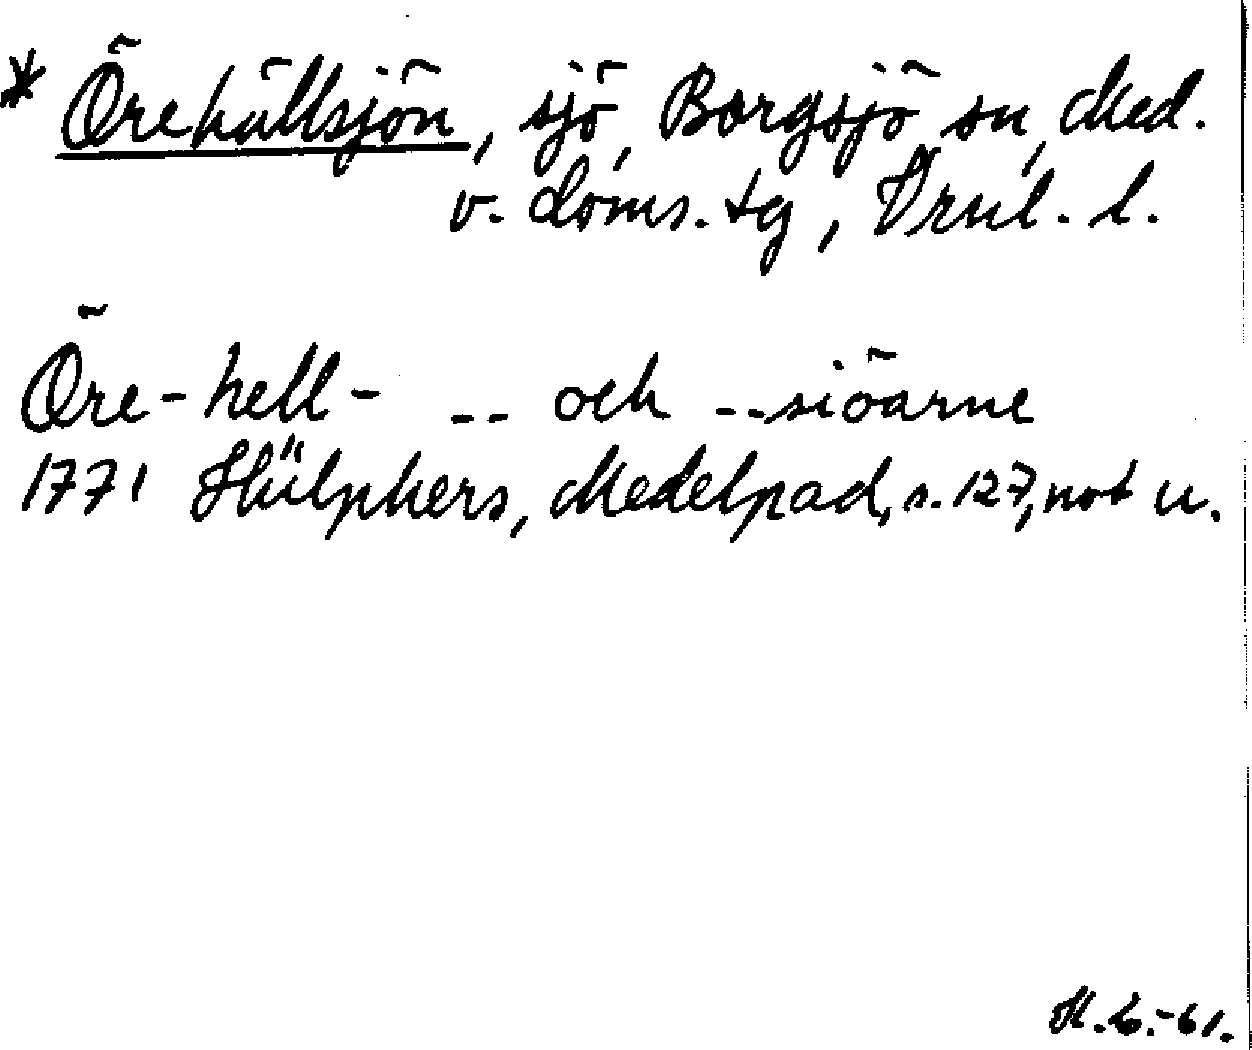 * Örehällsjön, sjö, Borgsjö sn, Med.
v. doms. tg, Vrnl. l.
Öre-hell- -- och --siöarne
1771 Hülphers, Medelpad, s. 127, not u.